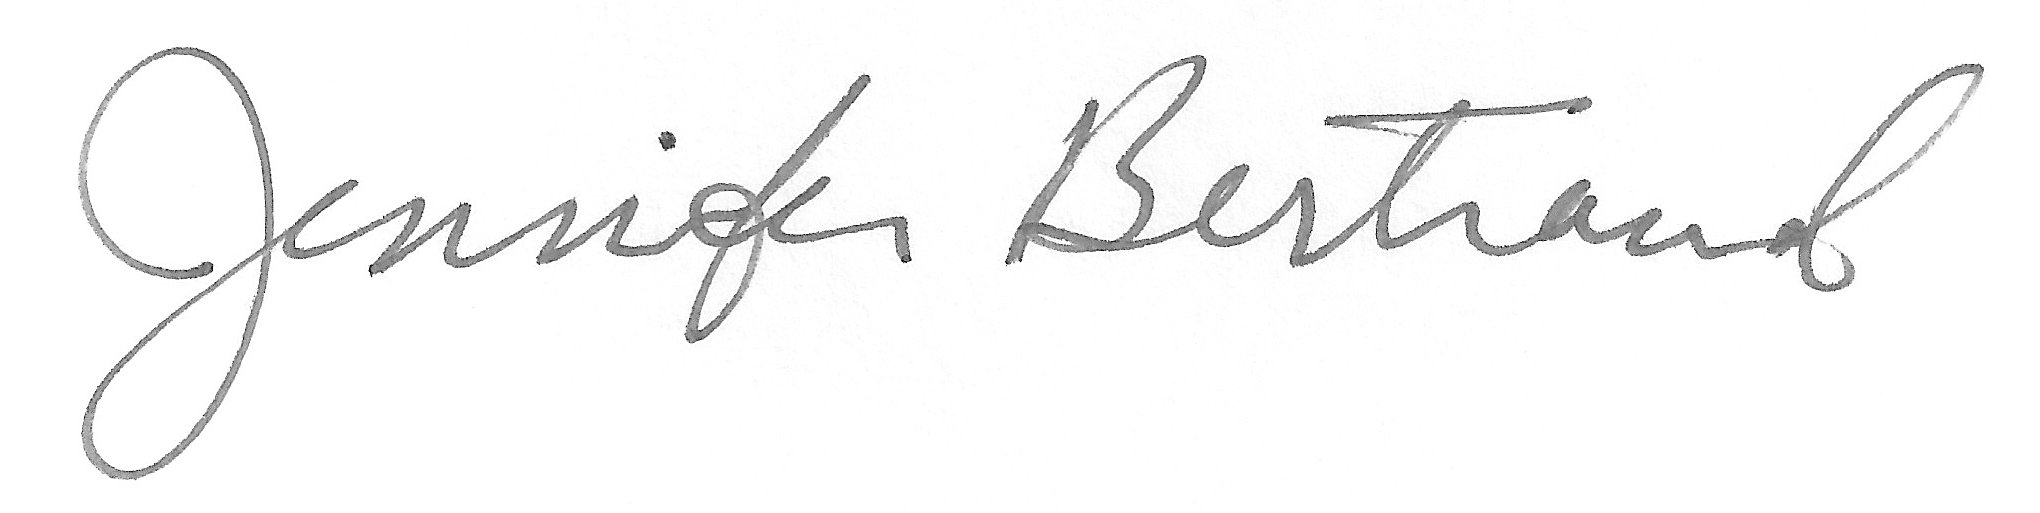 Jennifer Bertrand